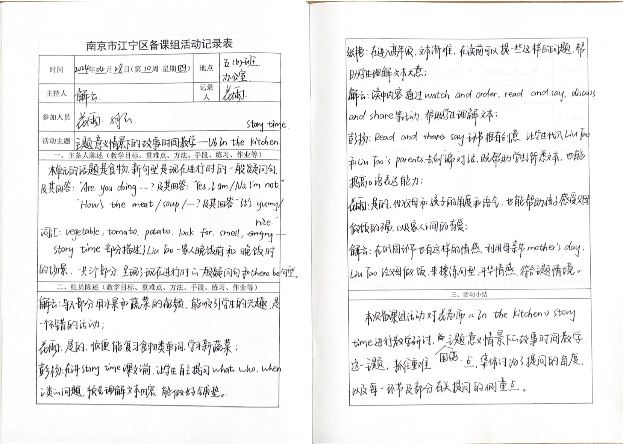 南京市江宁区备课组活动记录表
时间 2024年04月28日(第10周 星期四) 地点 五(6)班办公室
主持人 解云 记录人 花雨
参加人员 花雨、解云
story time
活动主题 主题意义情景下的故事时间教学——U6 In the kitchen
一、主备人陈述(教学目标、重难点、方法、手段、练习、作业等)
本单元的话题是食物,新句型是现在进行时的一般疑问句
及其回答:"Are you doing…?及其回答:Yes, I am/No, I'm not."
"How's the meat/soup/…?及其回答:"It's yummy/
nice."
词汇:vegetable, tomato, potato, look for, smell, angry
story time 部分描述了Liu Tao一家人晚饭前和晚饭时
的场景,共分部分呈现了现在进行时的一般疑问句和there be句型
二、组员陈述(教学目标、重难点、方法、手段、练习、作业等)
解云:导入部分用水果和蔬菜的歌,能吸引学生的兴趣,是
一个不错的活动;
花雨:是的,能复习食物类单词,学习新蔬菜;
彭扬:在讲story time课文前,让学生自主提问what, who, when
这类问题,按照理解文本内容,能做好铺垫。
在进入高年级,文本渐难,在读前可以提一些这样的问题,帮
助学生理解文本大意;
解云:读中内容通过watch and order, read and say, discuss
and share等活动,帮助学生理解文本;
彭扬:Read and share say 环节挺有创意,让学生代入Liu Tao
和Liu Tao's parents去创编对话,既帮助学生熟悉文本,也能
提高口语表达能力;
花雨:是的,代入父母和孩子的角度和语言,也能帮助孩子感受父母
做饭的,以及家人之间的有爱;
解云:在的设计也有这样的情感,利用母亲节mother's day,
Liu Tao给父母做饭,来操练句型,升华情感,符合主题情境。
三、活动小结
本次备课组活动对花雨In the kitchen story
time进行教学研讨,主题意义情景下的故事时间教学
这一主题,抓住重难点,集体讨论了提问的角度,
以及每一环节及部分有关提问的侧重点。